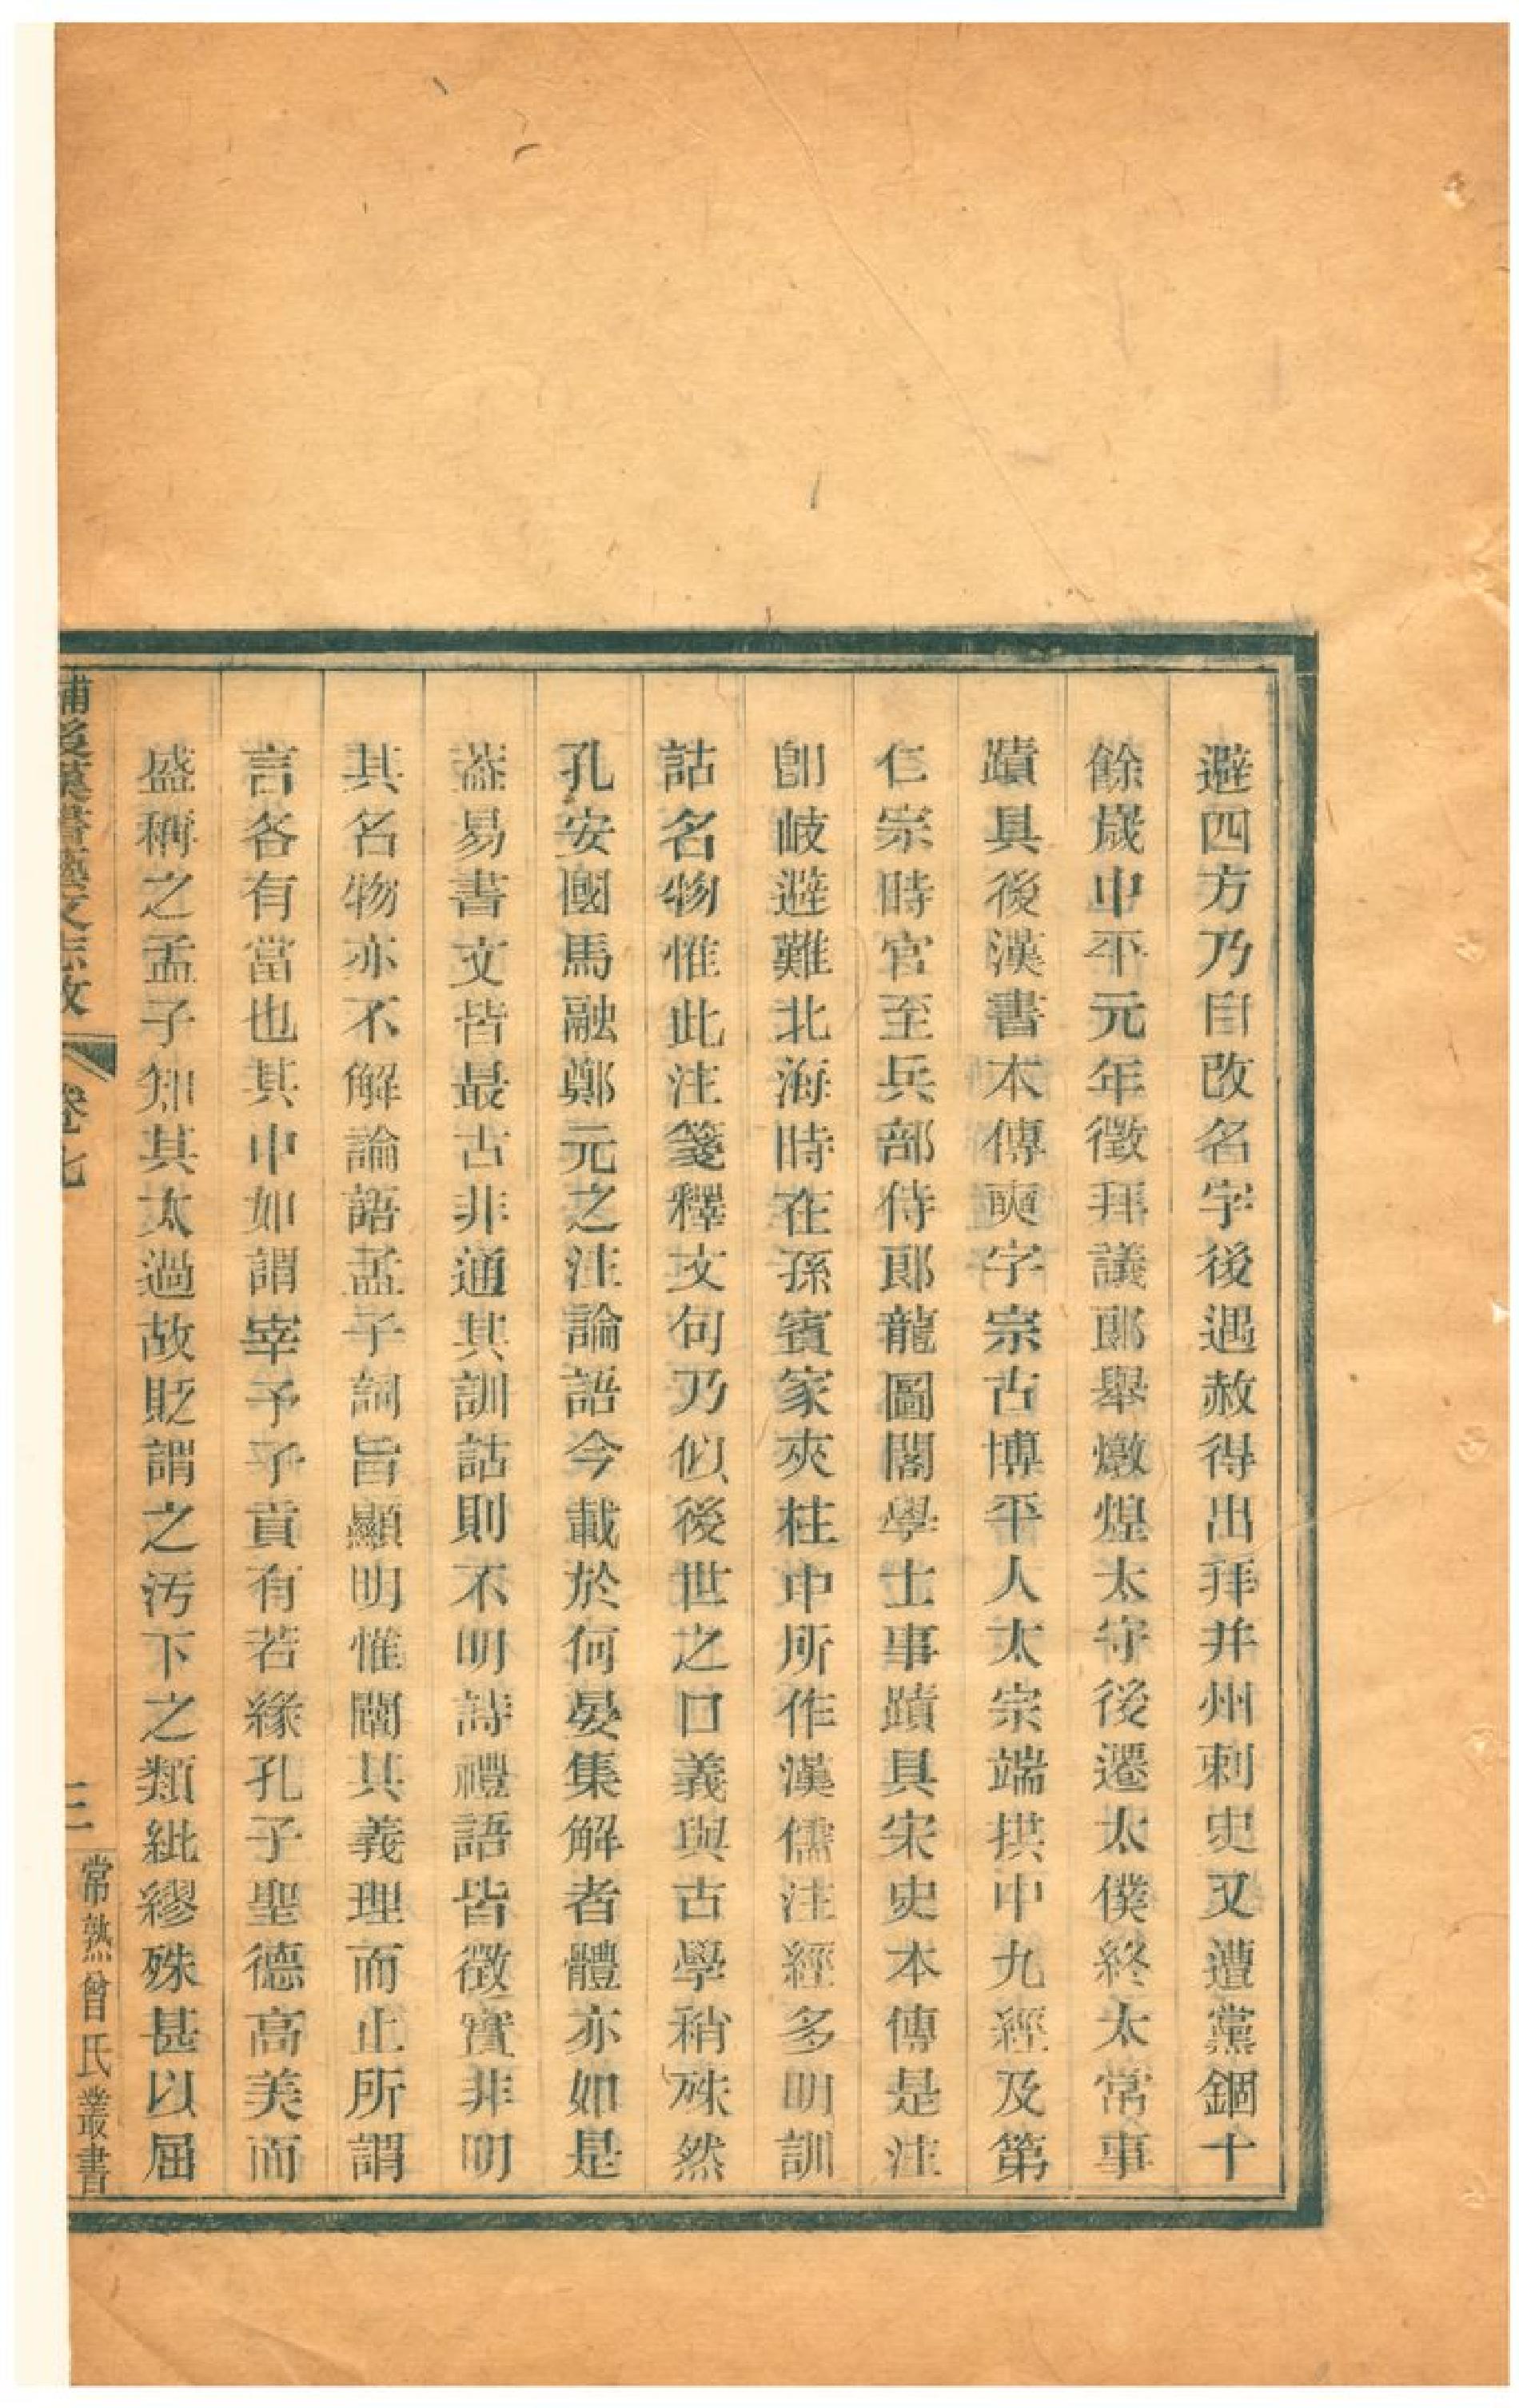 避四方乃自改名字後遇赦得出拜并州刺史又遭黨錮十
餘歲中平元年徵拜議郞舉燉煌太守後遷太僕終太常事
蹟具後漢書本傳奭字宗古博平人太宗端拱中九經及第
仁宗時官至兵部侍郞龍圖閣學士事蹟具宋史本傳是注
卽岐避難北海時在孫賓家夾柱中所作漢儒注經多明訓
詁名物惟此注箋釋文句乃似後世之口義與古學稍殊然
孔安國馬融鄭元之注論語今載於何晏集解者體亦如是
葢易書文皆最古非通其訓詁則不明詩禮語皆徵實非明
其名物亦不解論語孟子詞旨顯明惟闡其義理而止所謂
言各有當也其中如謂宰予子貢有若緣孔子聖德高美而
盛稱之孟子知其太過故貶謂之汚下之類紕繆殊甚以屈
補後漢書藝文志攷 卷七 三 常熟曾氏叢書